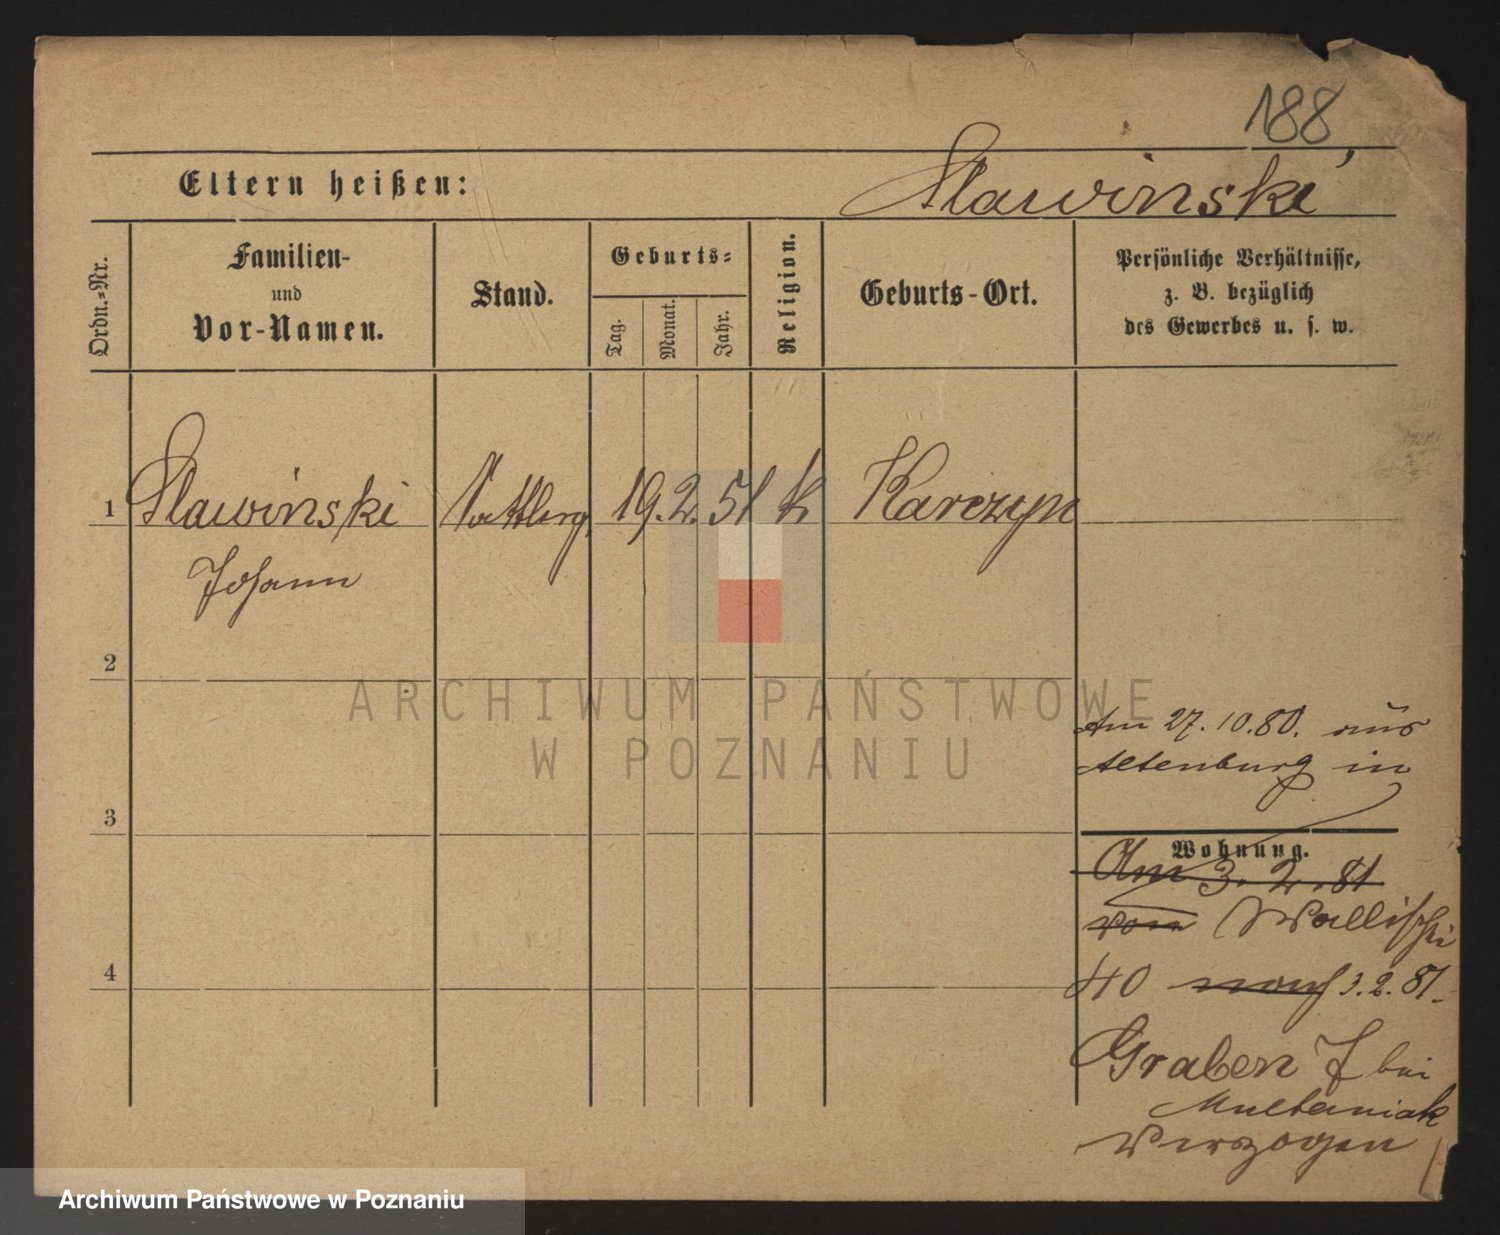 188
Slawinski
Eltern heißen:
Ordn.-Nr.
Familien-
und
Vor-Namen.
Stand.
Geburts-
Tag.
Monat.
Jahr.
Religion.
Geburts-Ort.
Persönliche Verhältnisse,
z. B. bezüglich
des Gewerbes u. s. w.
1 Slawinski 19. 2. 51 k Karczyn
Johann
2
ARCHIWUM PAŃSTWOWE
W POZNANIU
Am 27.10.80. aus
Altenburg in
3
Wohnung.
Am 3. 2. 81
von Wallischei
4
40 nach 3.2.81.
Graben 7 bei
Multaniak
Verzogen
Archiwum Państwowe w Poznaniu